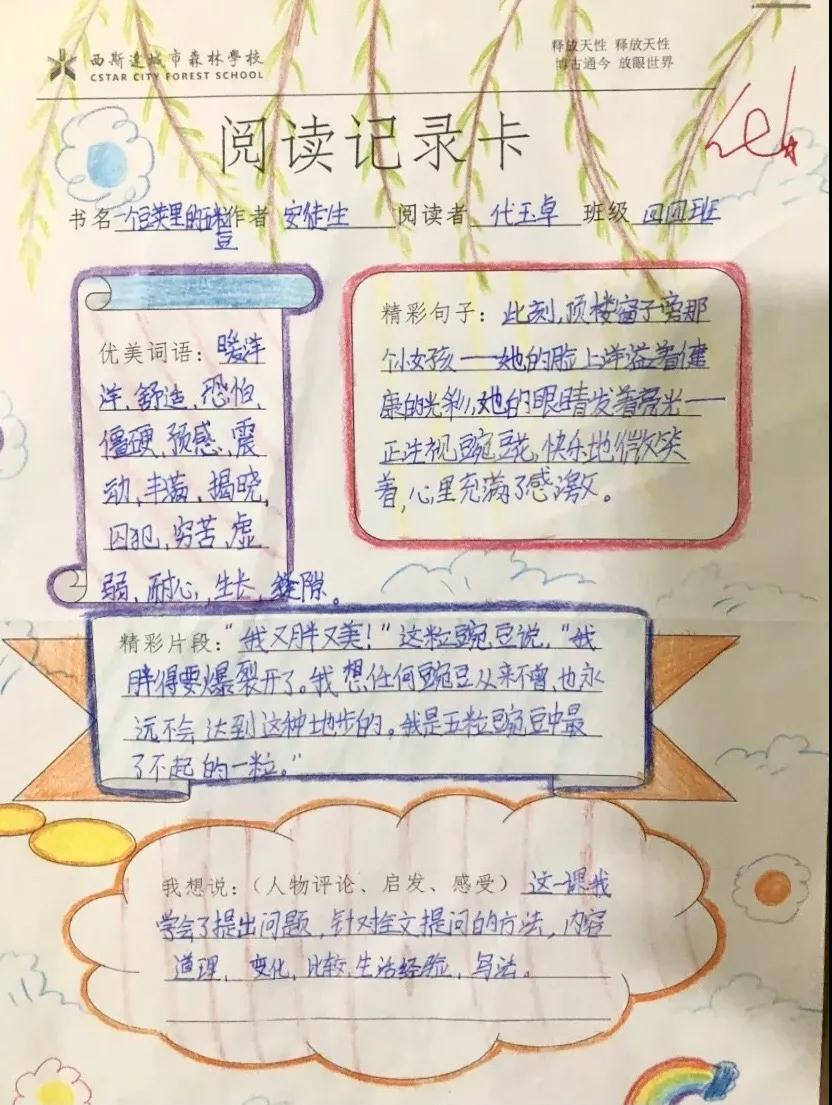 西斯达城市森林學校
CSTAR CITY FOREST SCHOOL
释放天性 释放天性
博古通今 放眼世界
阅读记录卡
书名 一个豆荚里的五粒豆 作者 安徒生 阅读者 代玉卓 班级 四四班
优美词语：暖洋
洋,舒适,恐怕,
僵硬,预感,震
动,丰满,揭晓,
囚犯,穷苦,虚
弱,耐心,生长,缝隙。
精彩句子：此刻,顶楼窗子旁那
个小女孩——她的脸上洋溢着健
康的光彩,她的眼睛发着亮光——
正注视豌豆花,快乐地微笑
着,心里充满了感激。
精彩片段：“我又胖又美!”这粒豌豆说,“我
胖得要爆裂开了。我想任何豌豆从来不曾,也永
远不会达到这种地步的。我是五粒豌豆中最
了不起的一粒。”
我想说：（人物评论、启发、感受）这一课我
学会了提出问题,针对全文提问的方法,内容
道理,变化,比较,生活经验,写法。